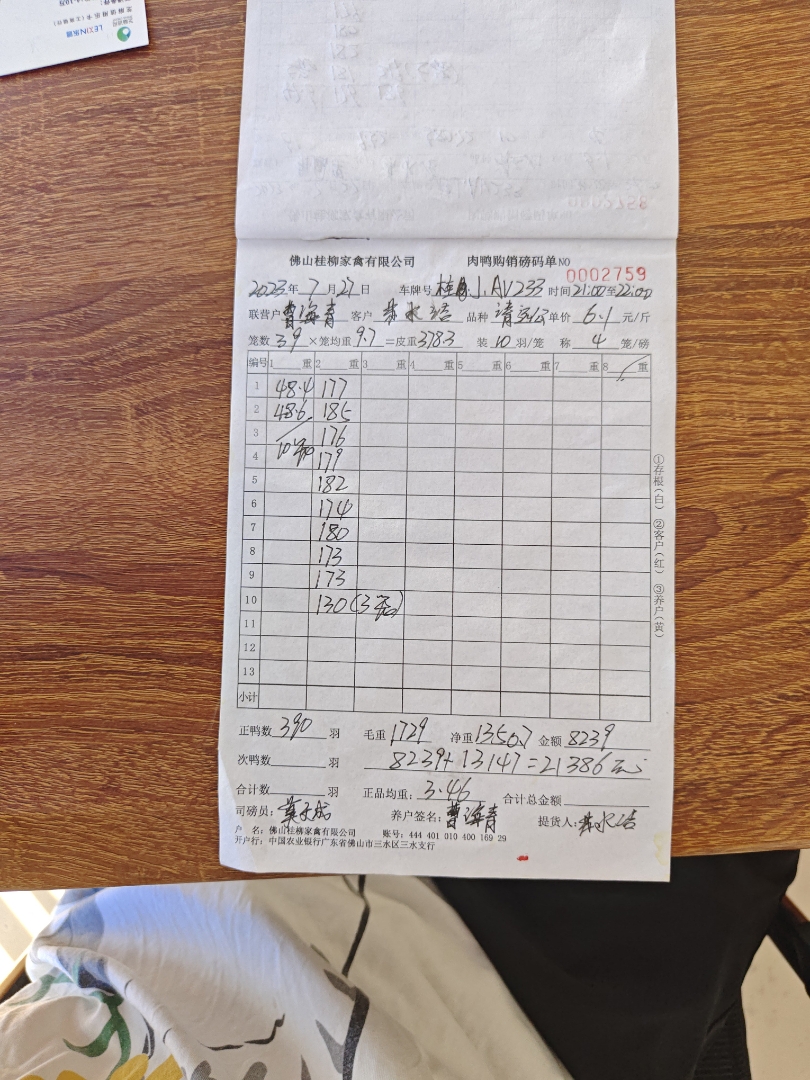 LEXIN乐信
佛山桂柳家禽有限公司 肉鸭购销磅码单NO 0002759
2023年 7月27日 车牌号 桂J.AV233 时间21:00至22:00
联营户 曹海青 客户 品种 单价 6.1 元/斤
笼数 39 ×笼均重 9.7 =皮重 378.3 装 10 羽/笼 称 4 笼/磅
编号 1 重 2 重 3 重 4 重 5 重 6 重 7 重 8 重
1 48.4 177
2 48.6 185
3 176
4 10 179
5 182
6 174
7 180
8 173
9 173
10 130(3笼)
11
12
13
小计
正鸭数 390 羽 毛重 1729 净重 1350.7 金额 8239
次鸭数 羽 8239+13147=21386元
合计数 羽 正品均重: 3.46 合计总金额
司磅员: 养户签名: 曹海青 提货人:
户 名: 佛山桂柳家禽有限公司 账号: 444 401 010 400 169 29
开户行: 中国农业银行广东省佛山市三水区三水支行
①存根(白) ②客户(红) ③养户(黄)